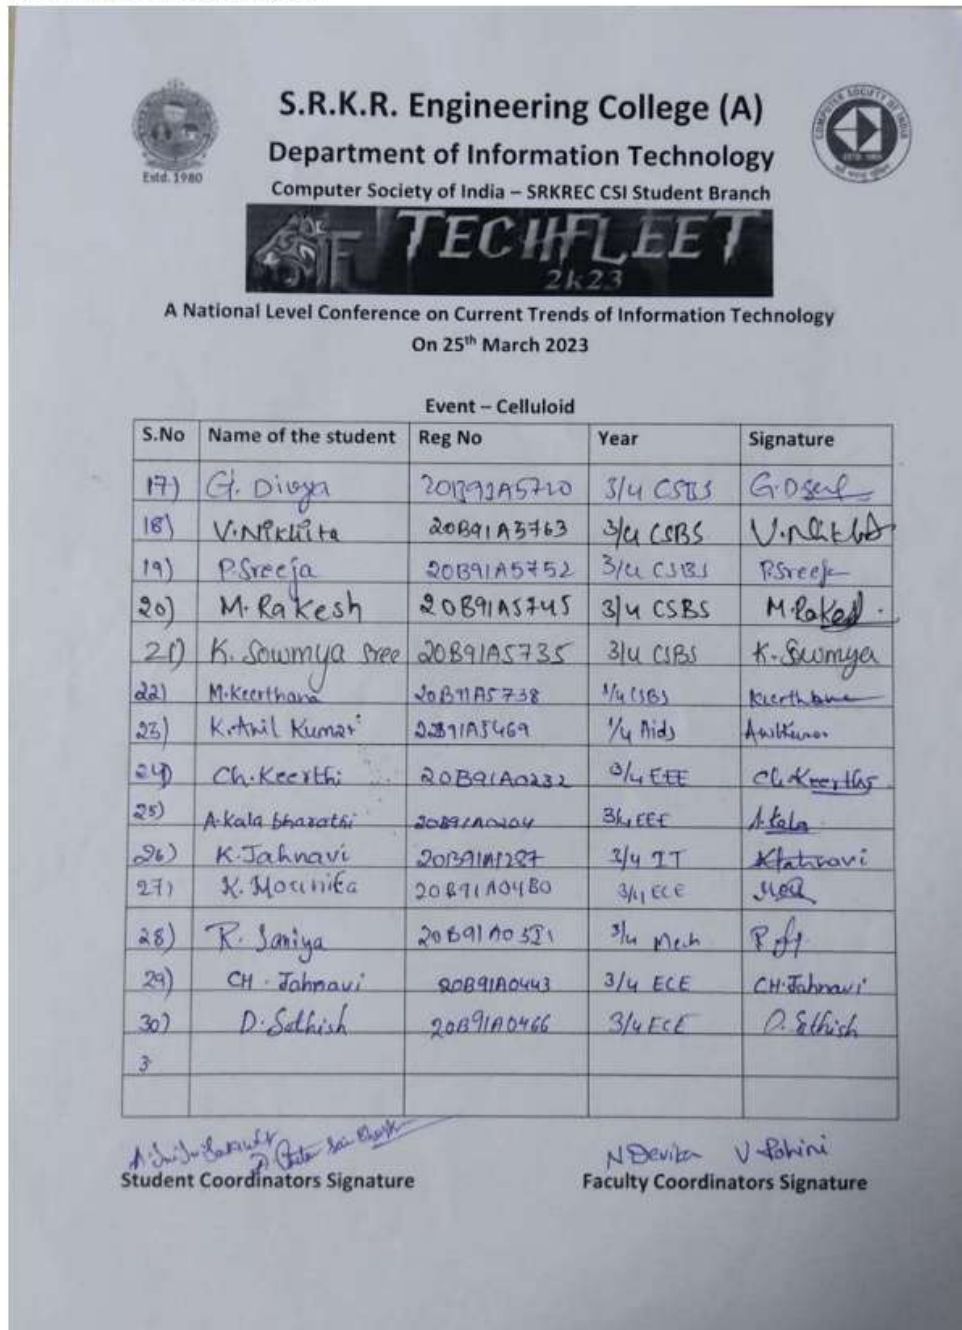 S.R.K.R. Engineering College (A)
Department of Information Technology
Estd. 1980
COMPUTER SOCIETY OF INDIA
Computer Society of India – SRKREC CSI Student Branch
TF TECHFLEET
2k23
A National Level Conference on Current Trends of Information Technology
On 25th March 2023
Event – Celluloid
S.No Name of the student Reg No Year Signature
17) G. Divya 20B91A5720 3/4 CSBS
18) V.Nikhita 20B91A5763 3/4 CSBS
19) P.Sreeja 20B91A5752 3/4 CSBS P.Sreeja
20) M. Rakesh 20B91A5745 3/4 CSBS M.Rakesh
21) K. Sowmya Sree 20B91A5735 3/4 CSBS K. Sowmya
22) M.Keerthana 20B91A5738 Keerthana
23) K.Anil Kumar 1/4 Aids Anilkumar
24) Ch.Keerthi 20B91A0232 3/4 EEE Ch.Keerthi
25) A.Kala bharathi 20B91A0204 3/4 EEE A.Kala
26) K.Jahnavi 20B91A1287 3/4 IT K.Jahnavi
27) K. Mounika 20B91A04B0 3/4 ECE
28) R. Saniya 3/4 Mech
29) CH. Jahnavi 20B91A0443 3/4 ECE CH.Jahnavi
30) D.Sathish 20B91A0466 3/4 ECE D.Sathish
3
N Devika
Student Coordinators Signature Faculty Coordinators Signature